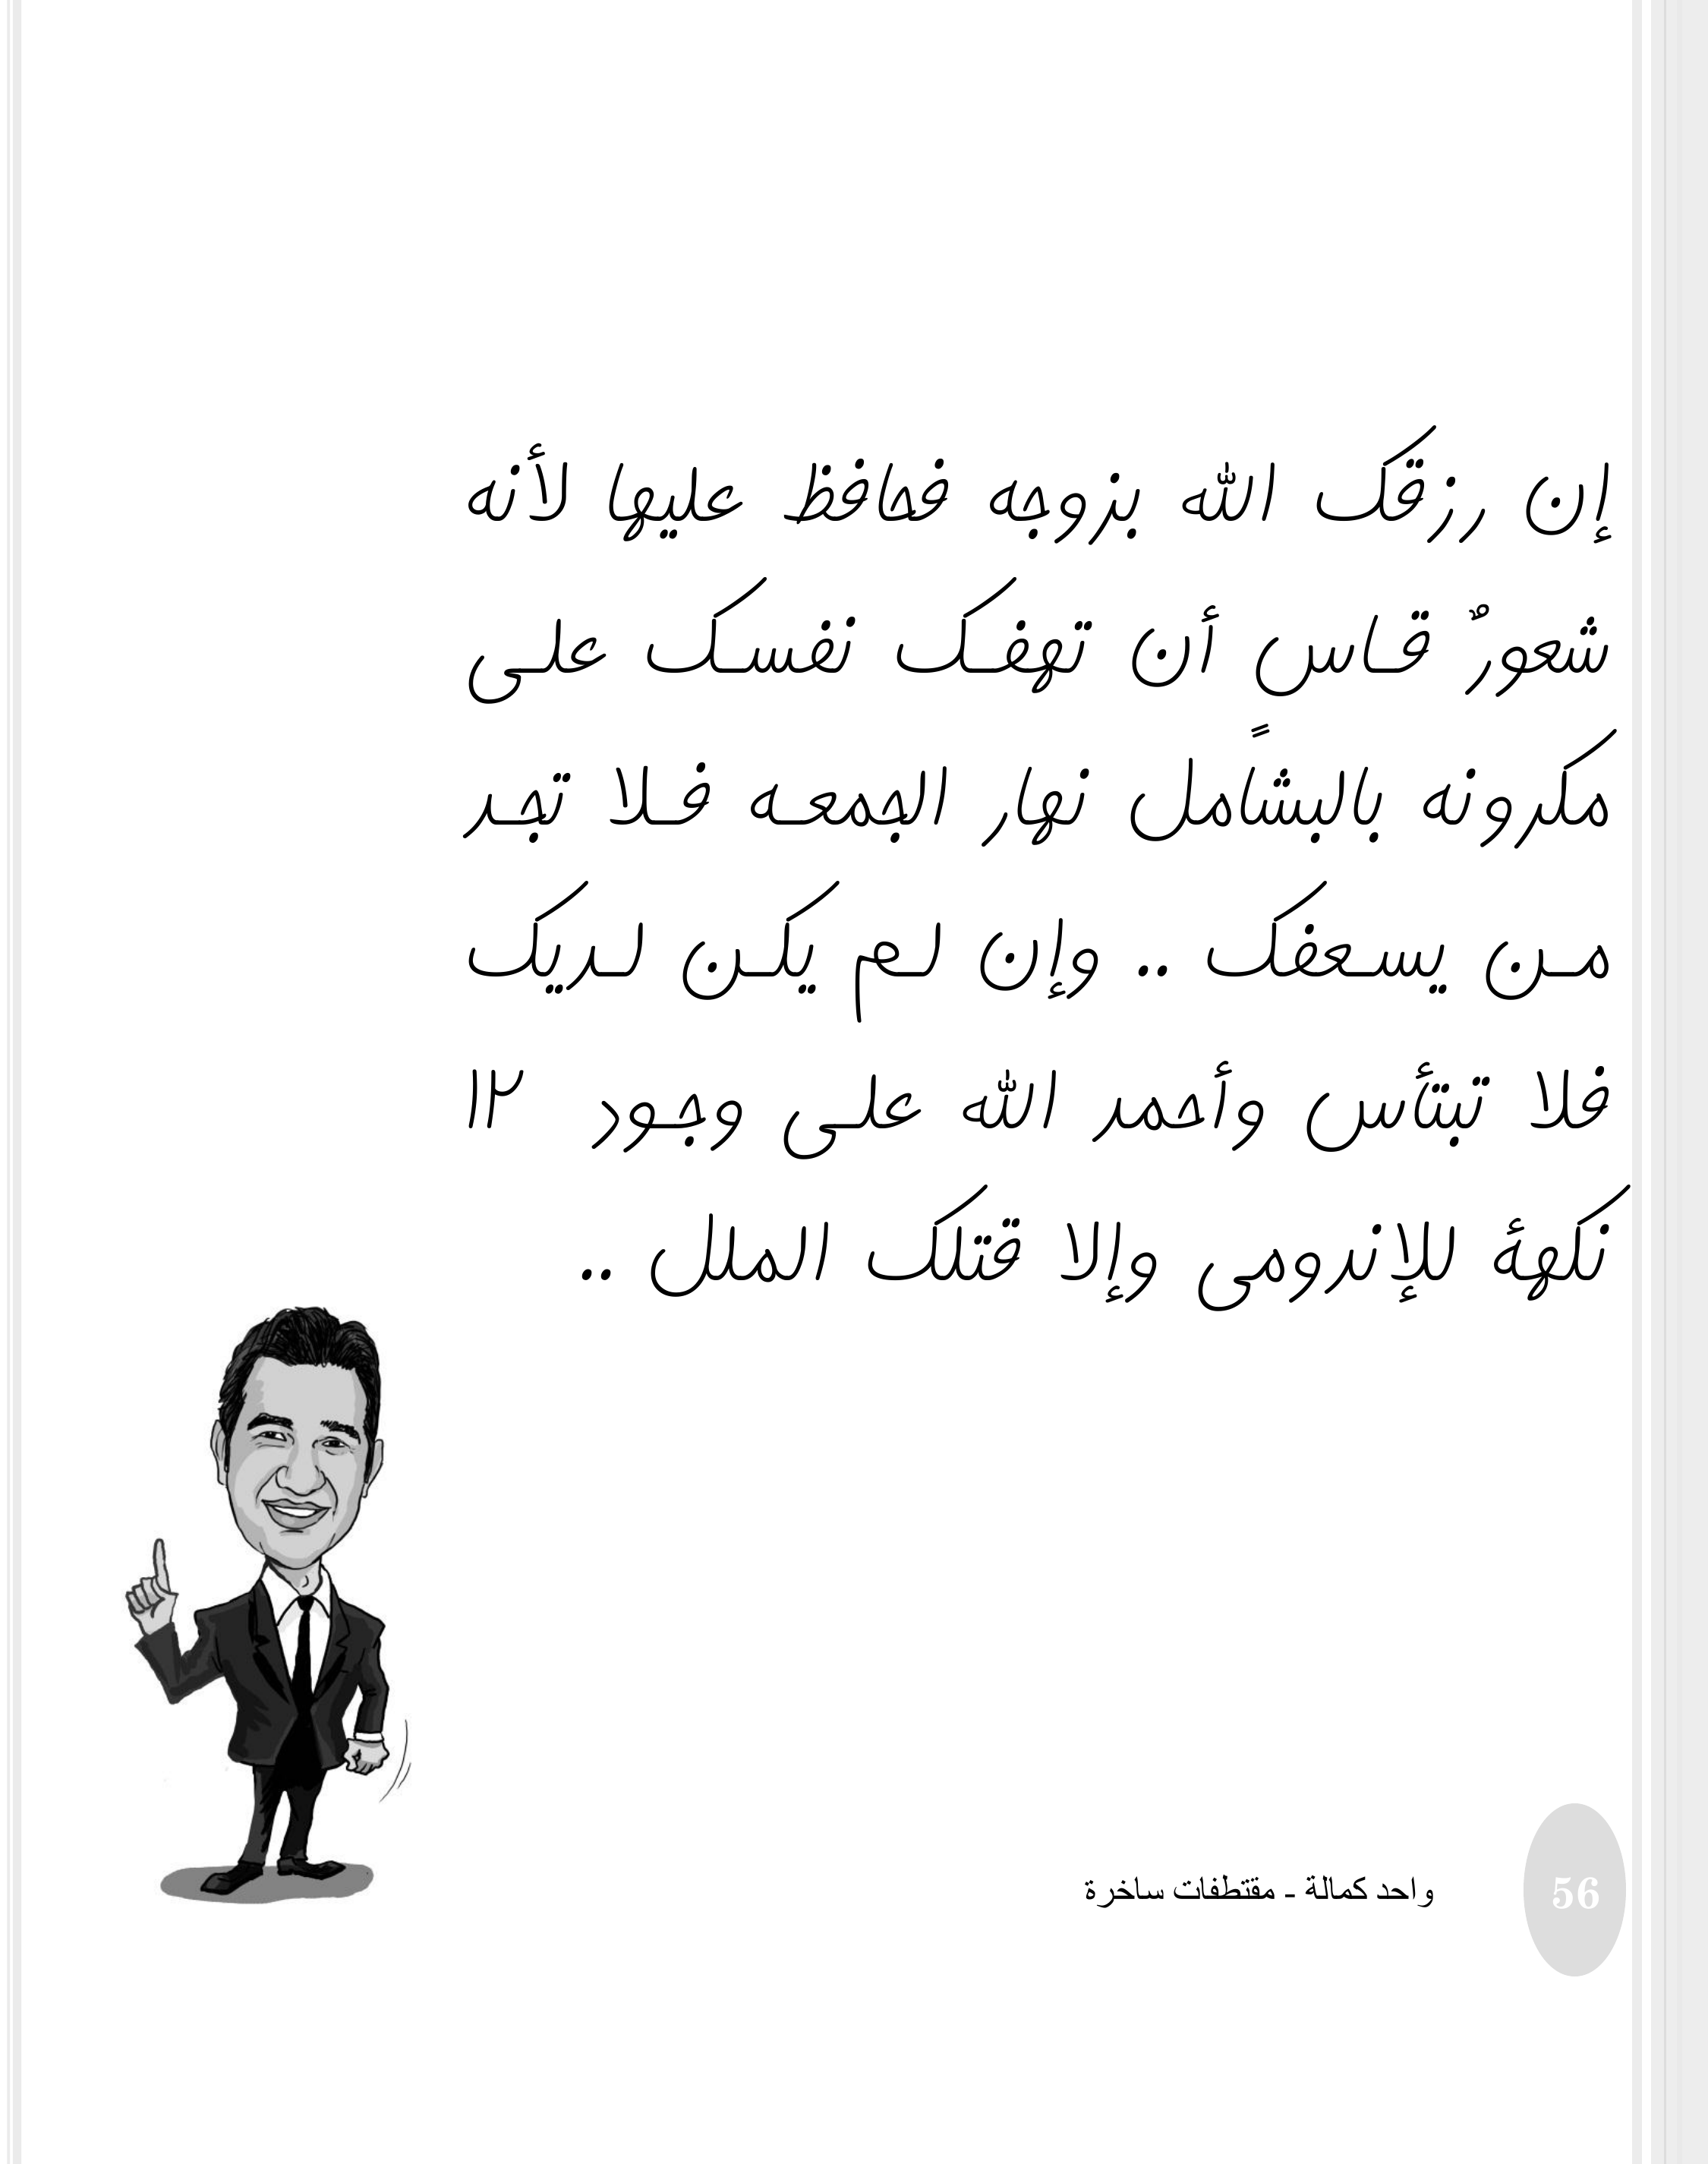 إن رزقك الله بزوجه فحافظ عليها لأنه
شعورٌ قاس أن تهفك نفسك على
مكرونه بالبشاًمل نهار الجمعه فلا تجد
من يسعفك .. وإن لم يكن لديك
فلا تبتأس وأحمد الله على وجود ١٢
نكهة للإندومى وإلا قتلك الملل ..
واحد كمالة - مقتطفات ساخرة
56